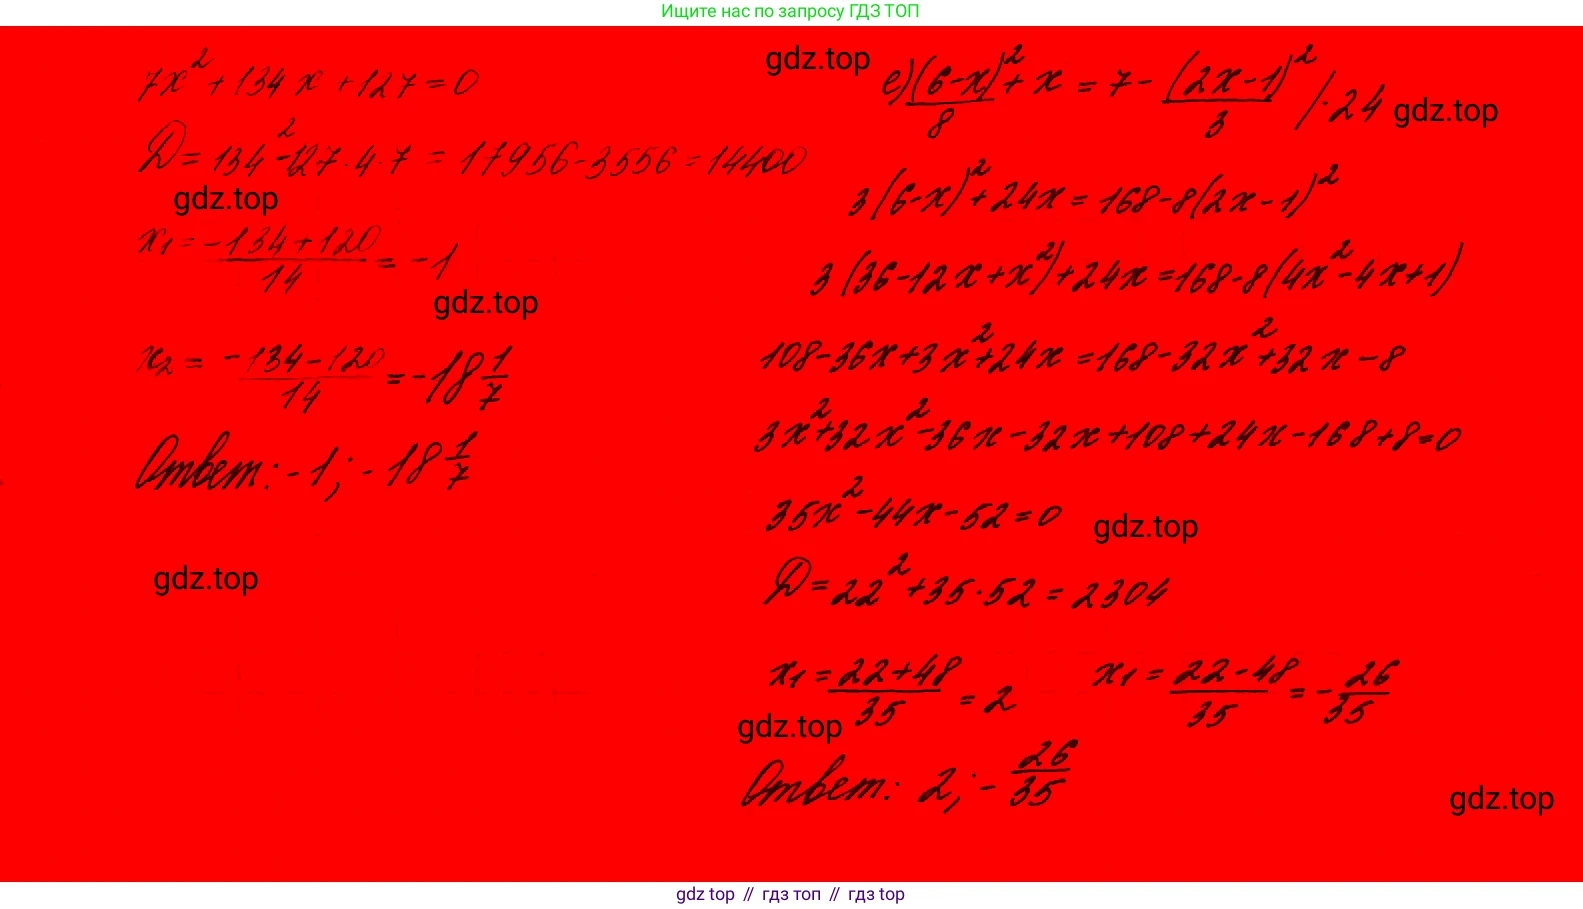 Ищите нас по запросу ГДЗ ТОП
7x² + 134x + 127 = 0
D = 134² - 127 · 4 · 7 = 17956 - 3556 = 14400
gdz.top
x₁ = (-134 + 120)/14 = -1
gdz.top
x₂ = (-134 - 120)/14 = -18 1/7
Ответ: -1; -18 1/7
gdz.top
gdz.top
е) (6-x)²/8 + x = 7 - (2x-1)²/3 / · 24
gdz.top
3(6-x)² + 24x = 168 - 8(2x-1)²
3(36-12x+x²) + 24x = 168 - 8(4x²-4x+1)
108 - 36x + 3x² + 24x = 168 - 32x² + 32x - 8
3x² + 32x² - 36x - 32x + 108 + 24x - 168 + 8 = 0
35x² - 44x - 52 = 0
gdz.top
D = 22² + 35 · 52 = 2304
x₁ = (22+48)/35 = 2 x₁ = (22-48)/35 = -26/35
gdz.top
Ответ: 2; -26/35
gdz.top
gdz top // гдз топ // гдз top